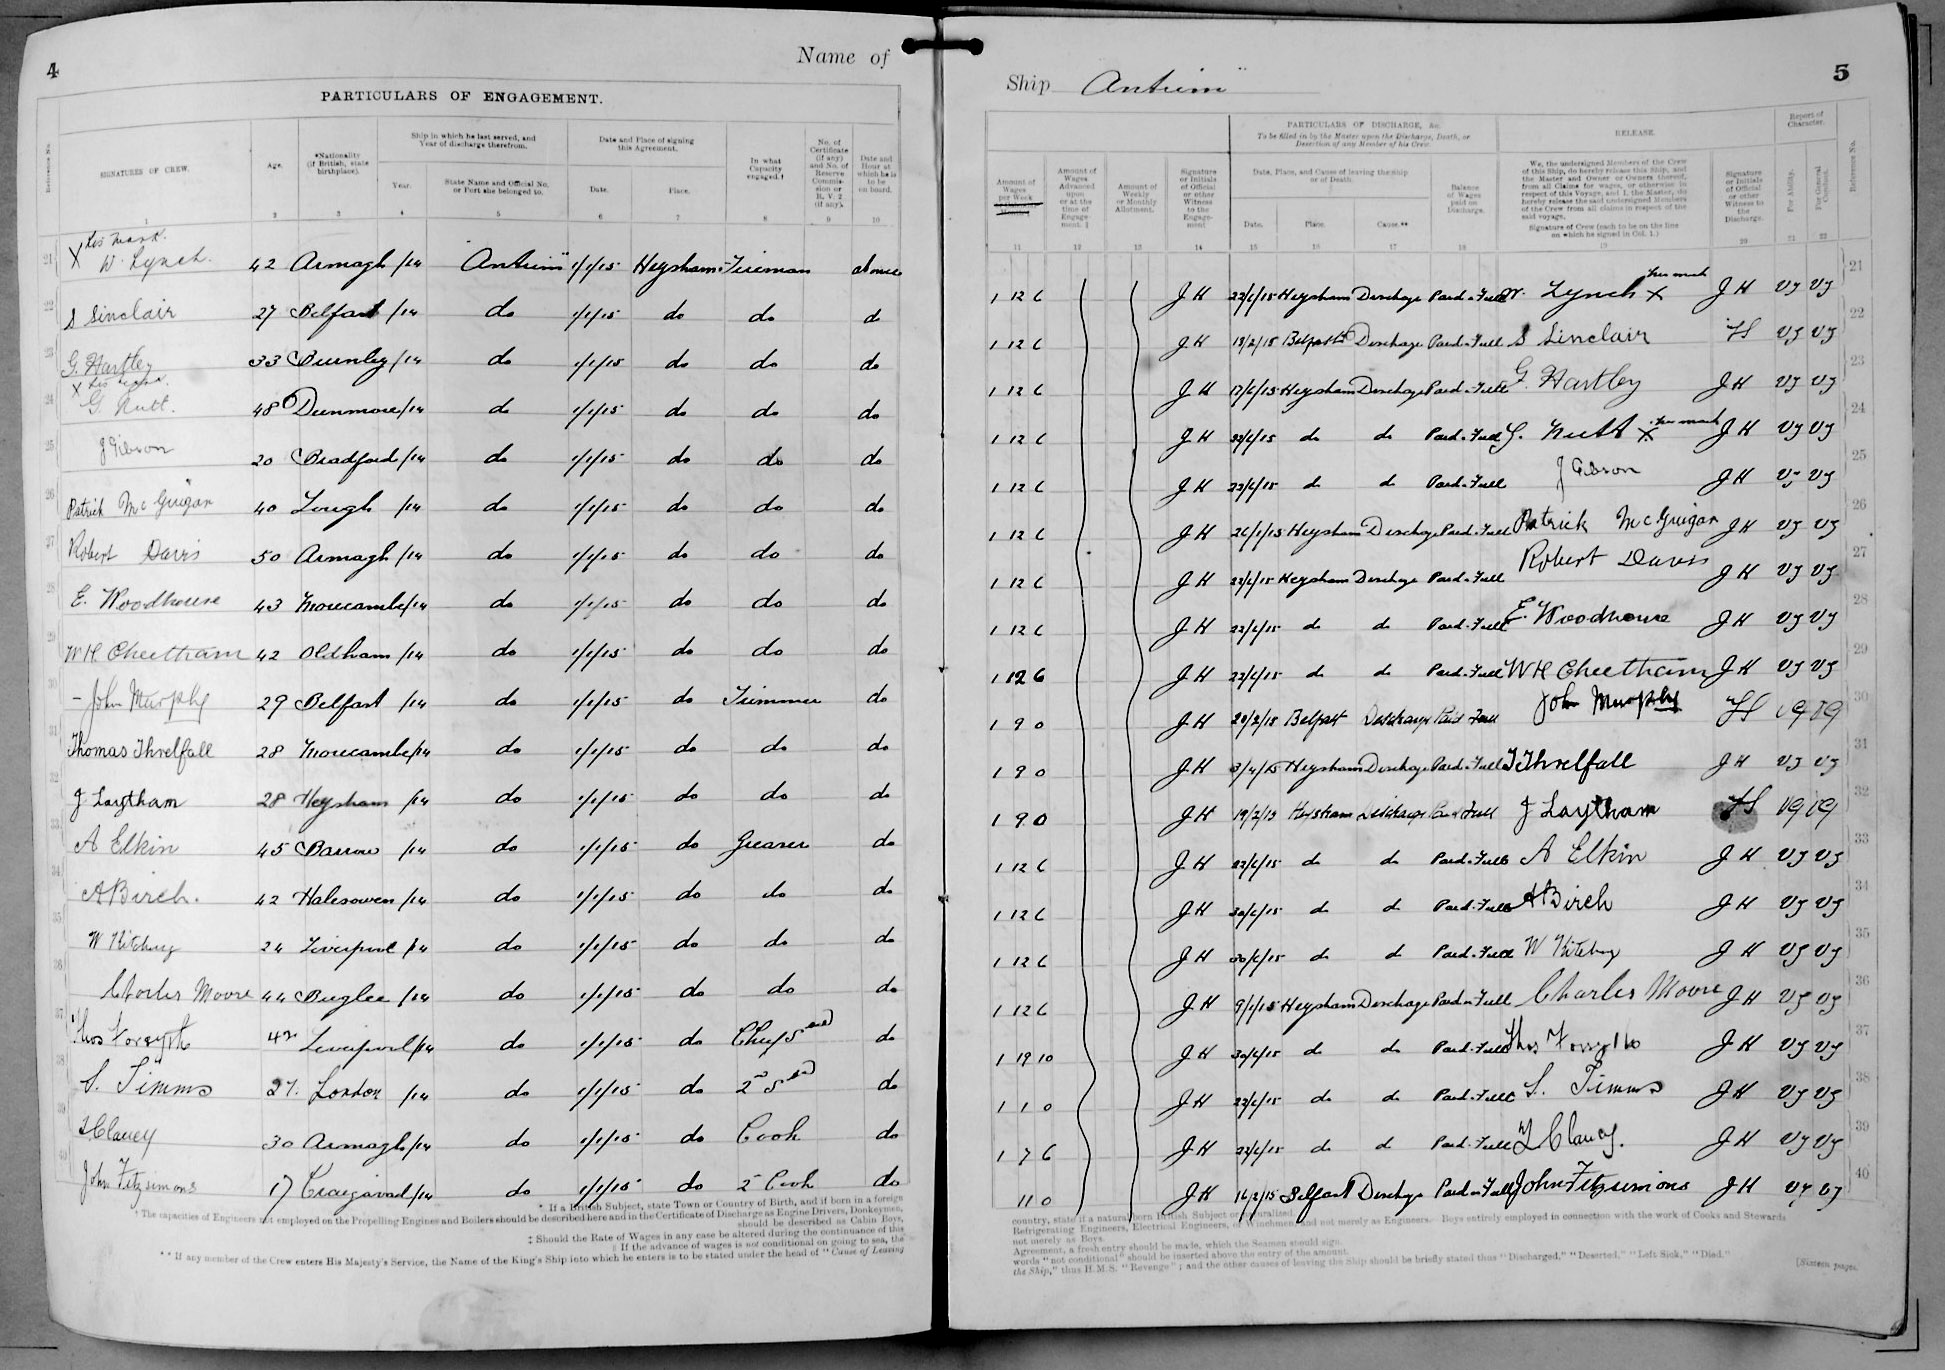 4
Name of
PARTICULARS OF ENGAGEMENT.
Reference No.
SIGNATURES OF CREW.
Age.
*Nationality (if British, state birthplace).
Ship in which he last served, and Year of discharge therefrom.
Year.
State Name and Official No. or Port she belonged to.
Date and Place of signing this Agreement.
Date.
Place.
In what Capacity engaged.†
No. of Certificate (if any) and No. of Reserve Commission or R. V. 2 (if any).
Date and Hour at which he is to be on board.
1 2 3 4 5 6 7 8 9 10
his mark.
21 X W. Lynch. 42 Armagh /14 "Antrim" 1/1/15 Heysham Fireman at once
22 S Sinclair 27 Belfast /14 do 1/1/15 do do do
23 G. Hartley 33 Burnley /14 do 1/1/15 do do do
X his mark.
24 G. Nutt. 48 Dunmore /14 do 1/1/15 do do do
25 J Gibson 20 Bradford /14 do 1/1/15 do do do
26 Patrick McGuigan 40 Lough /14 do 1/1/15 do do do
27 Robert Davis 50 Armagh /14 do 1/1/15 do do do
28 E. Woodhouse 43 Morecambe /14 do 1/1/15 do do do
29 W H Cheetham 42 Oldham /14 do 1/1/15 do do do
30 John Murphy 29 Belfast /14 do 1/1/15 do Trimmer do
31 Thomas Threlfall 28 Morecambe /14 do 1/1/15 do do do
32 J Laytham 28 Heysham /14 do 1/1/15 do do do
33 A Elkin 45 Barrow /14 do 1/1/15 do Greaser do
34 A Birch. 42 Halesowen /14 do 1/1/15 do do do
35 W 24 Liverpool /14 do 1/1/15 do do do
36 Charles Moore 44 /14 do 1/1/15 do do do
37 Thos Forsyth 42 Liverpool /14 do 1/1/15 do Chief Std do
38 S. Timms 27. London /14 do 1/1/15 do 2nd Std do
39 Clancy 30 Armagh /14 do 1/1/15 do Cook do
40 John Fitzsimons 17 Craigavad /14 do 1/1/15 do 2 Cook do
*. If a British Subject, state Town or Country of Birth, and if born in a foreign
† The capacities of Engineers not employed on the Propelling Engines and Boilers should be described here and in the Certificate of Discharge as Engine Drivers, Donkeymen,
should be described as Cabin Boys,
‡ Should the Rate of Wages in any case be altered during the continuance of this
If the advance of wages is not conditional on going to sea, the
** If any member of the Crew enters His Majesty's Service, the Name of the King's Ship into which he enters is to be stated under the head of "Cause of Leaving
Ship "Antrim"
5
Amount of Wages per Week
Amount of Wages Advanced upon or at the time of Engagement. ‡
Amount of Weekly or Monthly Allotment.
Signature or Initials of Official or other Witness to the Engagement
PARTICULARS OF DISCHARGE, &c.
To be filled in by the Master upon the Discharge, Death, or Desertion of any Member of his Crew.
Date, Place, and Cause of leaving the Ship or of Death.
Date.
Place.
Cause.**
Balance of Wages paid on Discharge.
RELEASE.
We, the undersigned Members of the Crew of this Ship, do hereby release this Ship, and the Master and Owner or Owners thereof, from all Claims for wages, or otherwise in respect of this Voyage, and I, the Master, do hereby release the said undersigned Members of the Crew from all claims in respect of the said voyage.
Signature of Crew (each to be on the line on which he signed in Col. 1.)
Signature or Initials of Official or other Witness to the Discharge.
Report of Character.
For Ability.
For General Conduct.
Reference No.
11 12 13 14 15 16 17 18 19 20 21 22
1 12 6 J H 22/6/15 Heysham Discharge Paid in Full W. Lynch X his mark J H VG VG 21
1 12 6 J H 13/2/15 Belfast Discharge Paid in Full S Sinclair VG VG 22
1 12 6 J H 17/6/15 Heysham Discharge Paid in Full G. Hartley J H VG VG 23
1 12 6 J H 22/6/15 do do Paid in Full G. Nutt X his mark J H VG VG 24
1 12 6 J H 22/6/15 do do Paid in Full J Gibson J H VG VG 25
1 12 6 J H 26/1/15 Heysham Discharge Paid in Full Patrick McGuigan J H VG VG 26
1 12 6 J H 22/6/15 Heysham Discharge Paid in Full Robert Davis J H VG VG 27
1 12 6 J H 22/6/15 do do Paid in Full E. Woodhouse J H VG VG 28
1 12 6 J H 22/6/15 do do Paid in Full W H Cheetham J H VG VG 29
1 9 0 J H 20/2/15 Belfast Discharge Paid Full John Murphy VG VG 30
1 9 0 J H 3/4/15 Heysham Discharge Paid in Full T Threlfall J H VG VG 31
1 9 0 J H 19/2/15 Heysham Discharge Paid Full J Laytham VG VG 32
1 12 6 J H 22/6/15 do do Paid in Full A Elkin J H VG VG 33
1 12 6 J H 30/6/15 do do Paid in Full A Birch J H VG VG 34
1 12 6 J H 30/6/15 do do Paid in Full W J H VG VG 35
1 12 6 J H 9/1/15 Heysham Discharge Paid in Full Charles Moore J H VG VG 36
1 19 10 J H 30/6/15 do do Paid in Full Thos Forsyth J H VG VG 37
1 1 0 J H 22/6/15 do do Paid in Full S. Timms J H VG VG 38
1 7 6 J H 22/6/15 do do Paid in Full Clancy. J H VG VG 39
11 0 J H 16/2/15 Belfast Discharge Paid in Full John Fitzsimons J H VG VG 40
country, state if a natural born British Subject or naturalised.
Refrigerating Engineers, Electrical Engineers, or Winchmen and not merely as Engineers. Boys entirely employed in connection with the work of Cooks and Stewards
not merely as Boys.
Agreement, a fresh entry should be made, which the Seamen should sign.
words "not conditional" should be inserted above the entry of the amount.
the Ship," thus H.M.S. "Revenge"; and the other causes of leaving the Ship should be briefly stated thus "Discharged," "Deserted," "Left Sick," "Died."
[Sixteen pages.